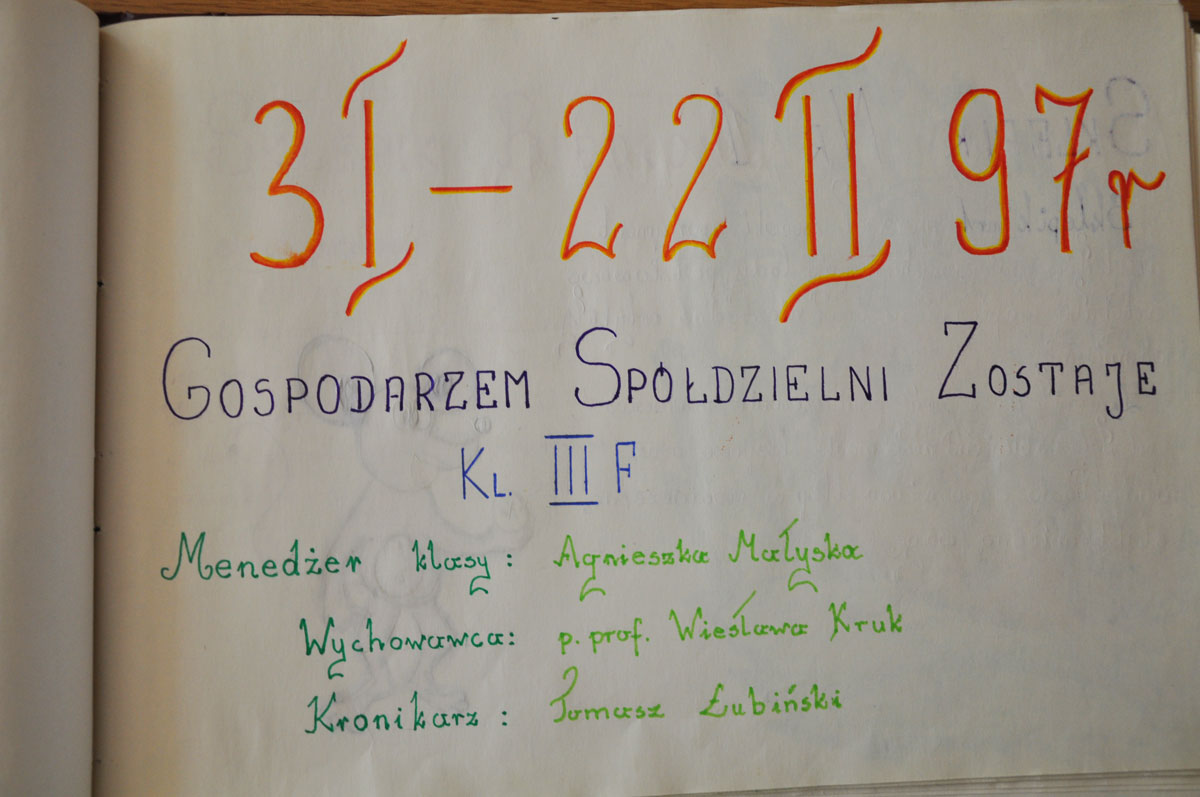 3 I – 22 II 97 r
GOSPODARZEM SPÓŁDZIELNI ZOSTAJE
KL. III F
Menedżer klasy: Agnieszka Małyska
Wychowawca: p. prof. Wiesława Kruk
Kronikarz: Tomasz Łubiński